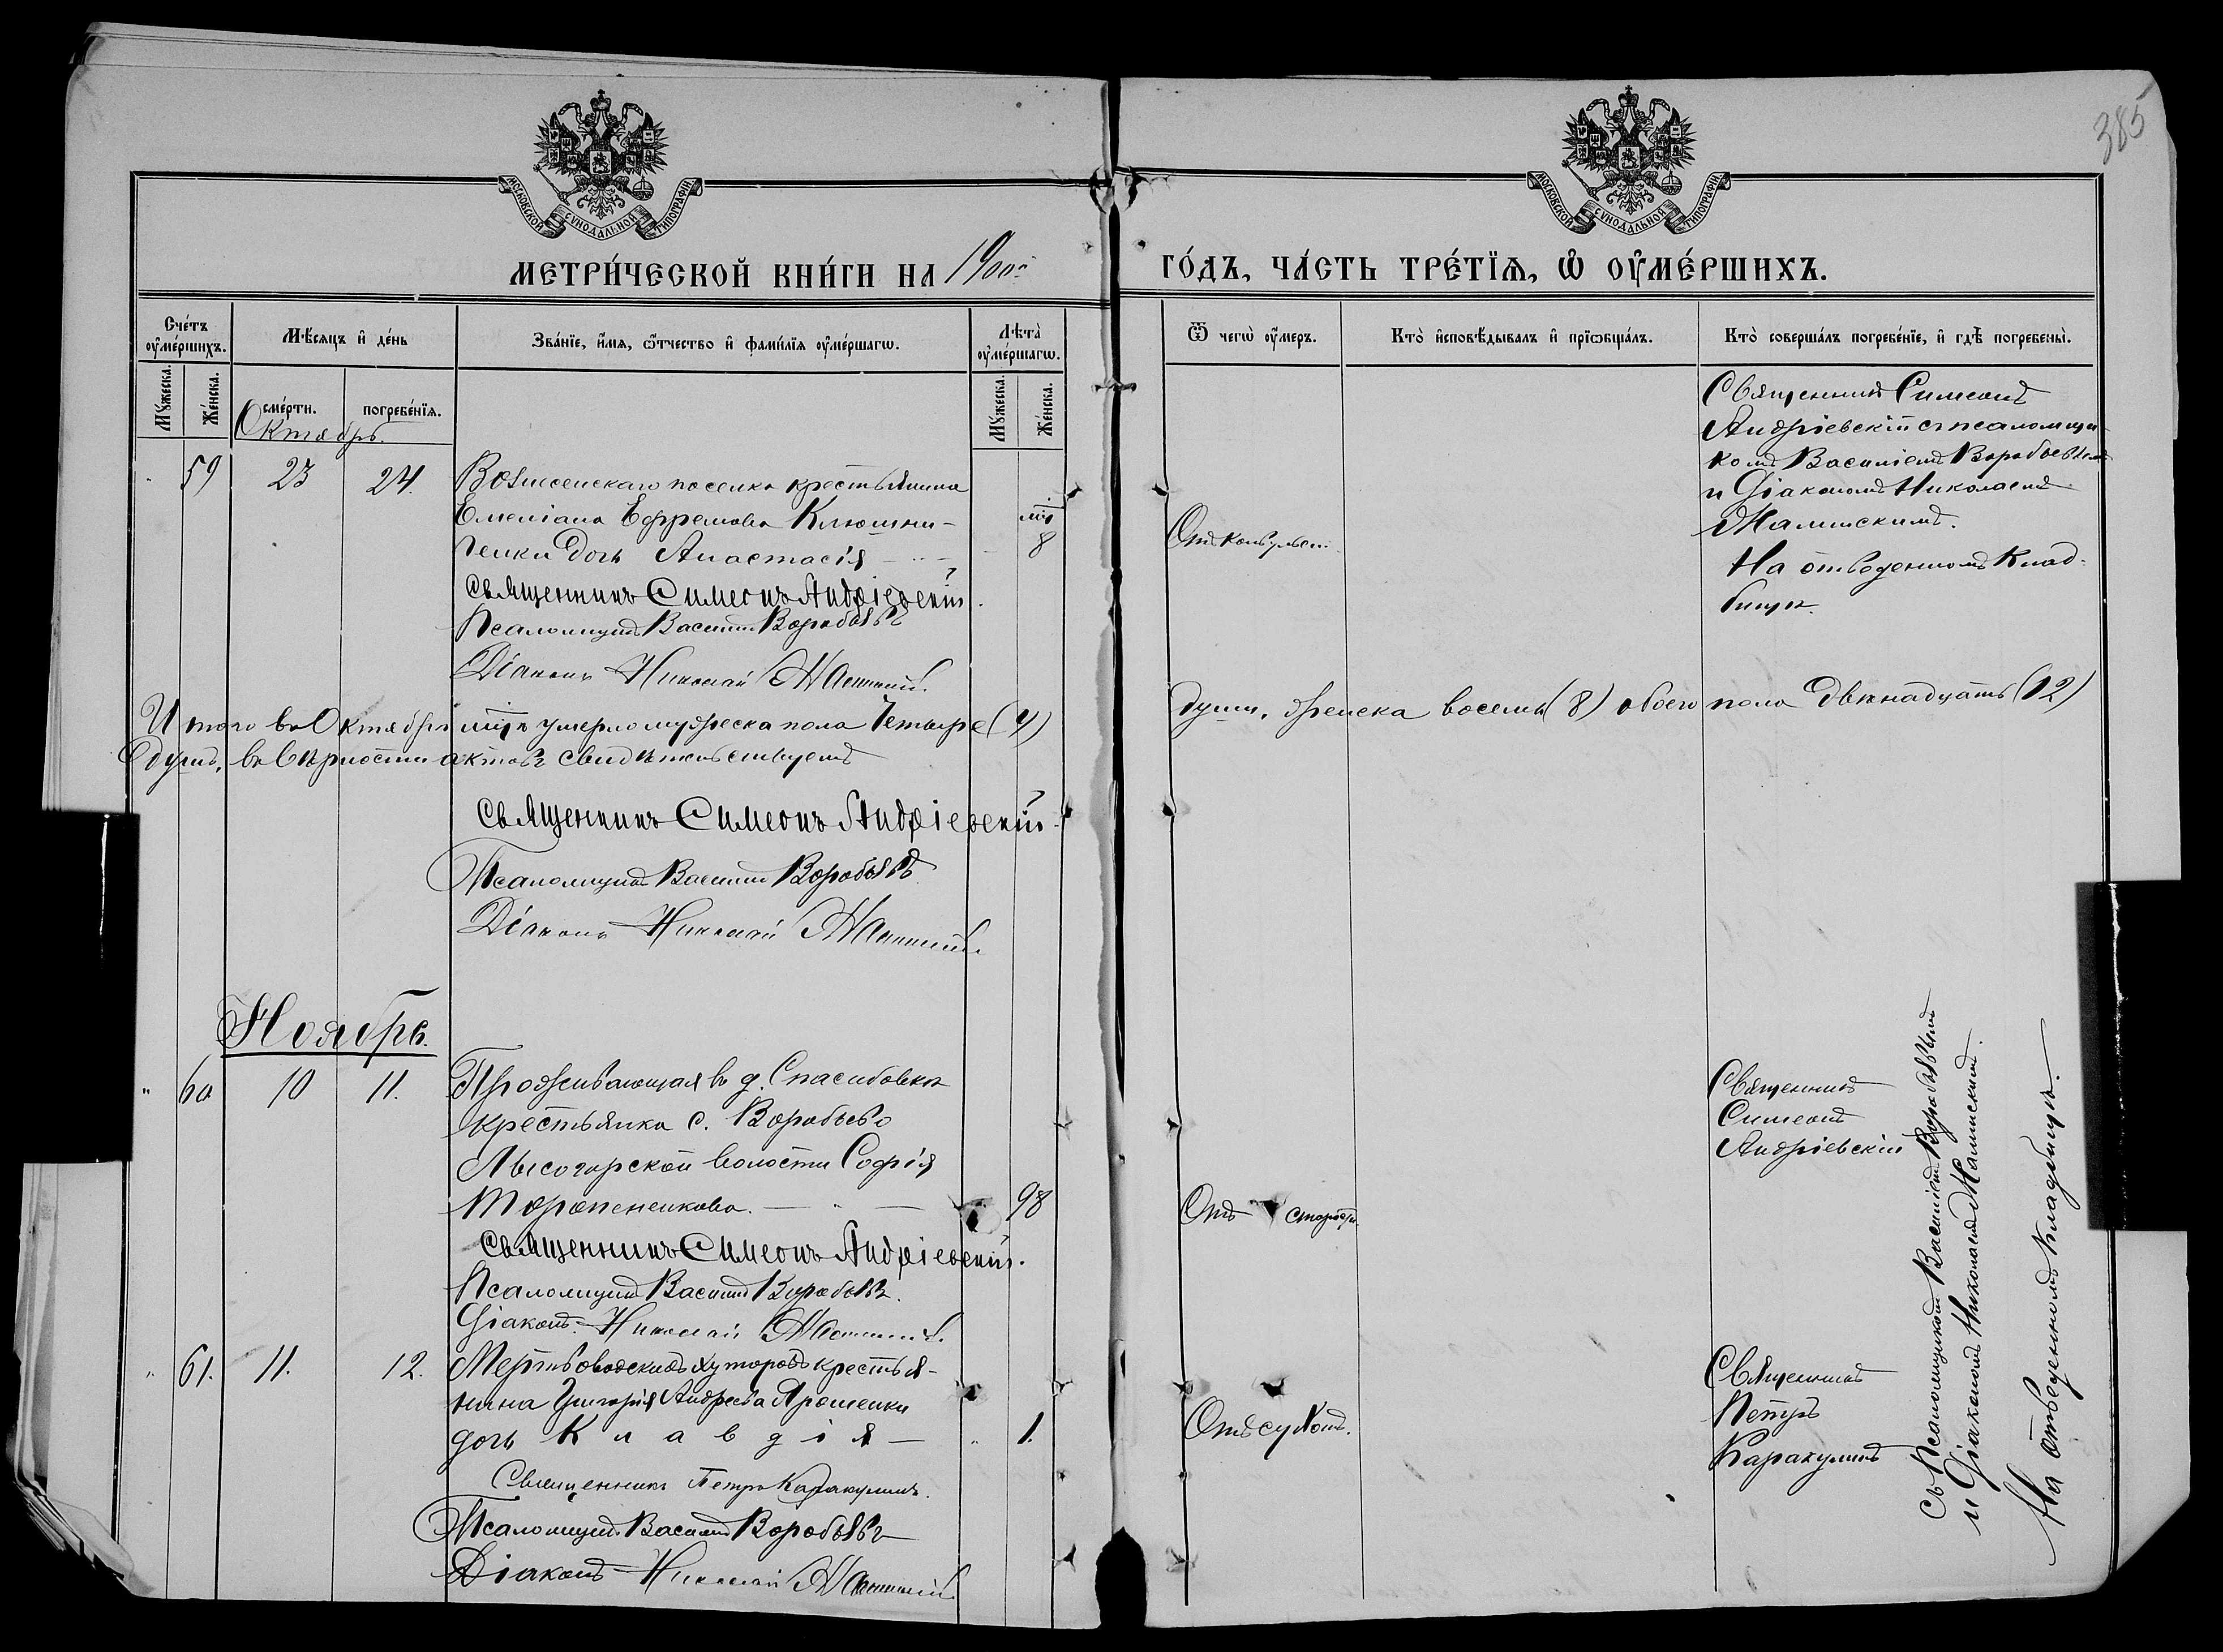 385
МОСКОВСКОЙ СУНОДАЛЬНОЙ ТИПОГРАФІИ
МОСКОВСКОЙ СУНОДАЛЬНОЙ ТИПОГРАФІИ
МЕТРИ́ЧЕСКОЙ КНИ́ГИ НА 1900й
ГО́ДЪ, ЧА́СТЬ ТРЕ́ТІѦ, Ѡ҆ ОУ҆МЕ́РШИХЪ.
Сче́тъ оу҆ме́ршихъ.
Мꙋ́жеска.
Же́нска.
Мѣ́сяцъ и҆ де́нь
сме́рти.
погребе́нїѧ.
Зва́нїе, и҆́мѧ, ѻ҆́тчество и҆ фами́лїѧ оу҆ме́ршагѡ.
Лѣта̀ оу҆ме́ршагѡ.
Мꙋ́жеска.
Же́нска.
Ѿ чегѡ̀ оу҆́меръ.
Кто̀ и҆сповѣ́дывалъ и҆ прїѡбща́лъ.
Кто̀ соверша́лъ погребе́нїе, и҆ гдѣ̀ погребены̀.
Октябрь.
59 23 24.
Вознесенскаго поселка крестьянина
Емеліана Ефремова Ключни-
ченки дочь Анастасія
8
Священникъ Симеонъ Андріевскій.
Псаломщикъ Василій Воробьевъ
Діаконъ Николай
Священникъ Симеонъ
Андріевскій съ псаломщи-
комъ Василіемъ Воробьевымъ
и Діакономъ Николаемъ
На отведенномъ клад-
бищѣ.
Итого въ Октябрѣ мцѣ умерло мужеска пола четыре (4)
души, женска восемь (8) обоего пола двѣнадцать (12)
душъ, въ вѣрности актовъ свидѣтельствуемъ
Священникъ Симеонъ Андріевскій.
Псаломщикъ Василій Воробьевъ
Діаконъ Николай
Ноябрь.
" 60 10 11.
Проживающая въ д. Спасибовкѣ
крестьянка с. Воробьево
Лысогорской волости Софія
98
Отъ старости.
Священникъ Симеонъ Андріевскій.
Псаломщикъ Василій Воробьевъ.
Діаконъ Николай
Священникъ
Симеонъ
Андріевскій
" 61. 11. 12.
Мертвоводскихъ хуторовъ крестья-
нина Григорія Андреева Ярошенки
дочь Клавдія
" 1.
Священникъ Петръ Каракулинъ.
Псаломщикъ Василій Воробьевъ
Діаконъ Николай
Священникъ
Петръ
Каракулинъ
съ Псаломщикомъ Василіемъ Воробьевымъ
и Діакономъ Николаемъ
На отведенномъ кладбищѣ.